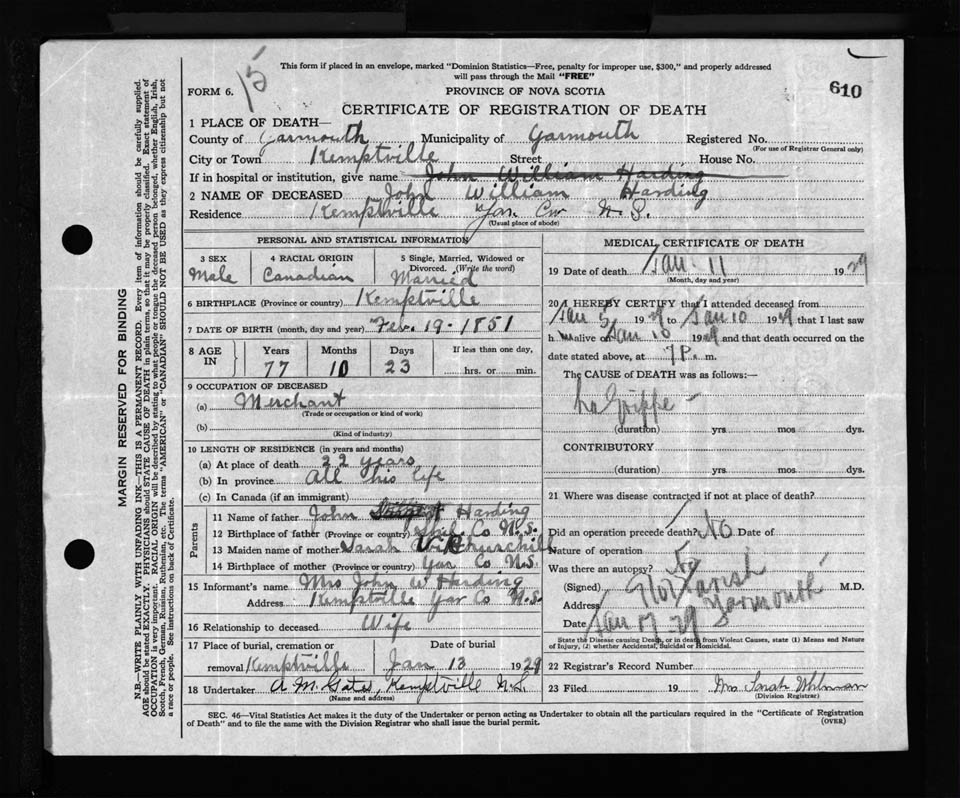 15
This form if placed in an envelope, marked "Dominion Statistics—Free, penalty for improper use, $300," and properly addressed
will pass through the Mail "FREE"
FORM 6.
PROVINCE OF NOVA SCOTIA
610
CERTIFICATE OF REGISTRATION OF DEATH
1 PLACE OF DEATH—
County of Yarmouth Municipality of Yarmouth Registered No.
(For use of Registrar General only)
City or Town Kemptville Street House No.
If in hospital or institution, give name John William Harding
2 NAME OF DECEASED John William Harding
Residence Kemptville Yar Co N.S.
(Usual place of abode)
PERSONAL AND STATISTICAL INFORMATION
3 SEX
Male
4 RACIAL ORIGIN
Canadian
5 Single, Married, Widowed or
Divorced. (Write the word)
Married
6 BIRTHPLACE (Province or country) Kemptville
7 DATE OF BIRTH (month, day and year) Fev. 19-1851
8 AGE IN Years Months Days If less than one day,
77 10 23 hrs. or min.
9 OCCUPATION OF DECEASED
(a) Merchant
(Trade or occupation or kind of work)
(b)
(Kind of industry)
10 LENGTH OF RESIDENCE (in years and months)
(a) At place of death 22 years
(b) In province All his life
(c) In Canada (if an immigrant)
Parents
11 Name of father John Harding
12 Birthplace of father (Province or country) Shel. Co N.S.
13 Maiden name of mother Sarah Churchill
14 Birthplace of mother (Province or country) Yar Co N.S.
15 Informant's name Mrs John W Harding
Address Kemptville Yar Co N.S.
16 Relationship to deceased Wife
17 Place of burial, cremation or
removal Kemptville
Date of burial
Jan 13 1929
18 Undertaker A.M. Gates, Kemptville N.S.
(Name and address)
MEDICAL CERTIFICATE OF DEATH
19 Date of death Jan. 11 1929
(Month, day and year)
20 I HEREBY CERTIFY that I attended deceased from
Jan 5 1929 to Jan 10 1929 that I last saw
h im alive on Jan 10 1929 and that death occurred on the
date stated above, at 7 P. m.
The CAUSE of DEATH was as follows:—
La Grippe —
(duration) yrs mos dys.
CONTRIBUTORY
(duration) yrs. mos. dys.
21 Where was disease contracted if not at place of death?
Did an operation precede death? No Date of
Nature of operation
Was there an autopsy? No
(Signed) Farish M.D.
Address Yarmouth
Date Jan 17 29
State the Disease causing Death, or in death from Violent Causes, state (1) Means and Nature
of Injury, (2) whether Accidental, Suicidal or Homicidal.
22 Registrar's Record Number
23 Filed 19 Mrs Sarah
(Division Registrar)
SEC. 46—Vital Statistics Act makes it the duty of the Undertaker or person acting as Undertaker to obtain all the particulars required in the "Certificate of Registration
of Death" and to file the same with the Division Registrar who shall issue the burial permit.
(OVER)
MARGIN RESERVED FOR BINDING
N.B.—WRITE PLAINLY WITH UNFADING INK—THIS IS A PERMANENT RECORD. Every item of information should be carefully supplied.
AGE should be stated EXACTLY. PHYSICIANS should STATE CAUSE OF DEATH in plain terms, so that it may be properly classified. Exact statement of
OCCUPATION is very important. RACIAL ORIGIN will be described by stating to what people or tongue the deceased person belonged, whether English, Irish,
Scotch, French, German, Russian, Ruthenian, etc. The terms "AMERICAN" or "CANADIAN" SHOULD NOT BE USED as they express citizenship but not
a race or people. See instructions on back of Certificate.